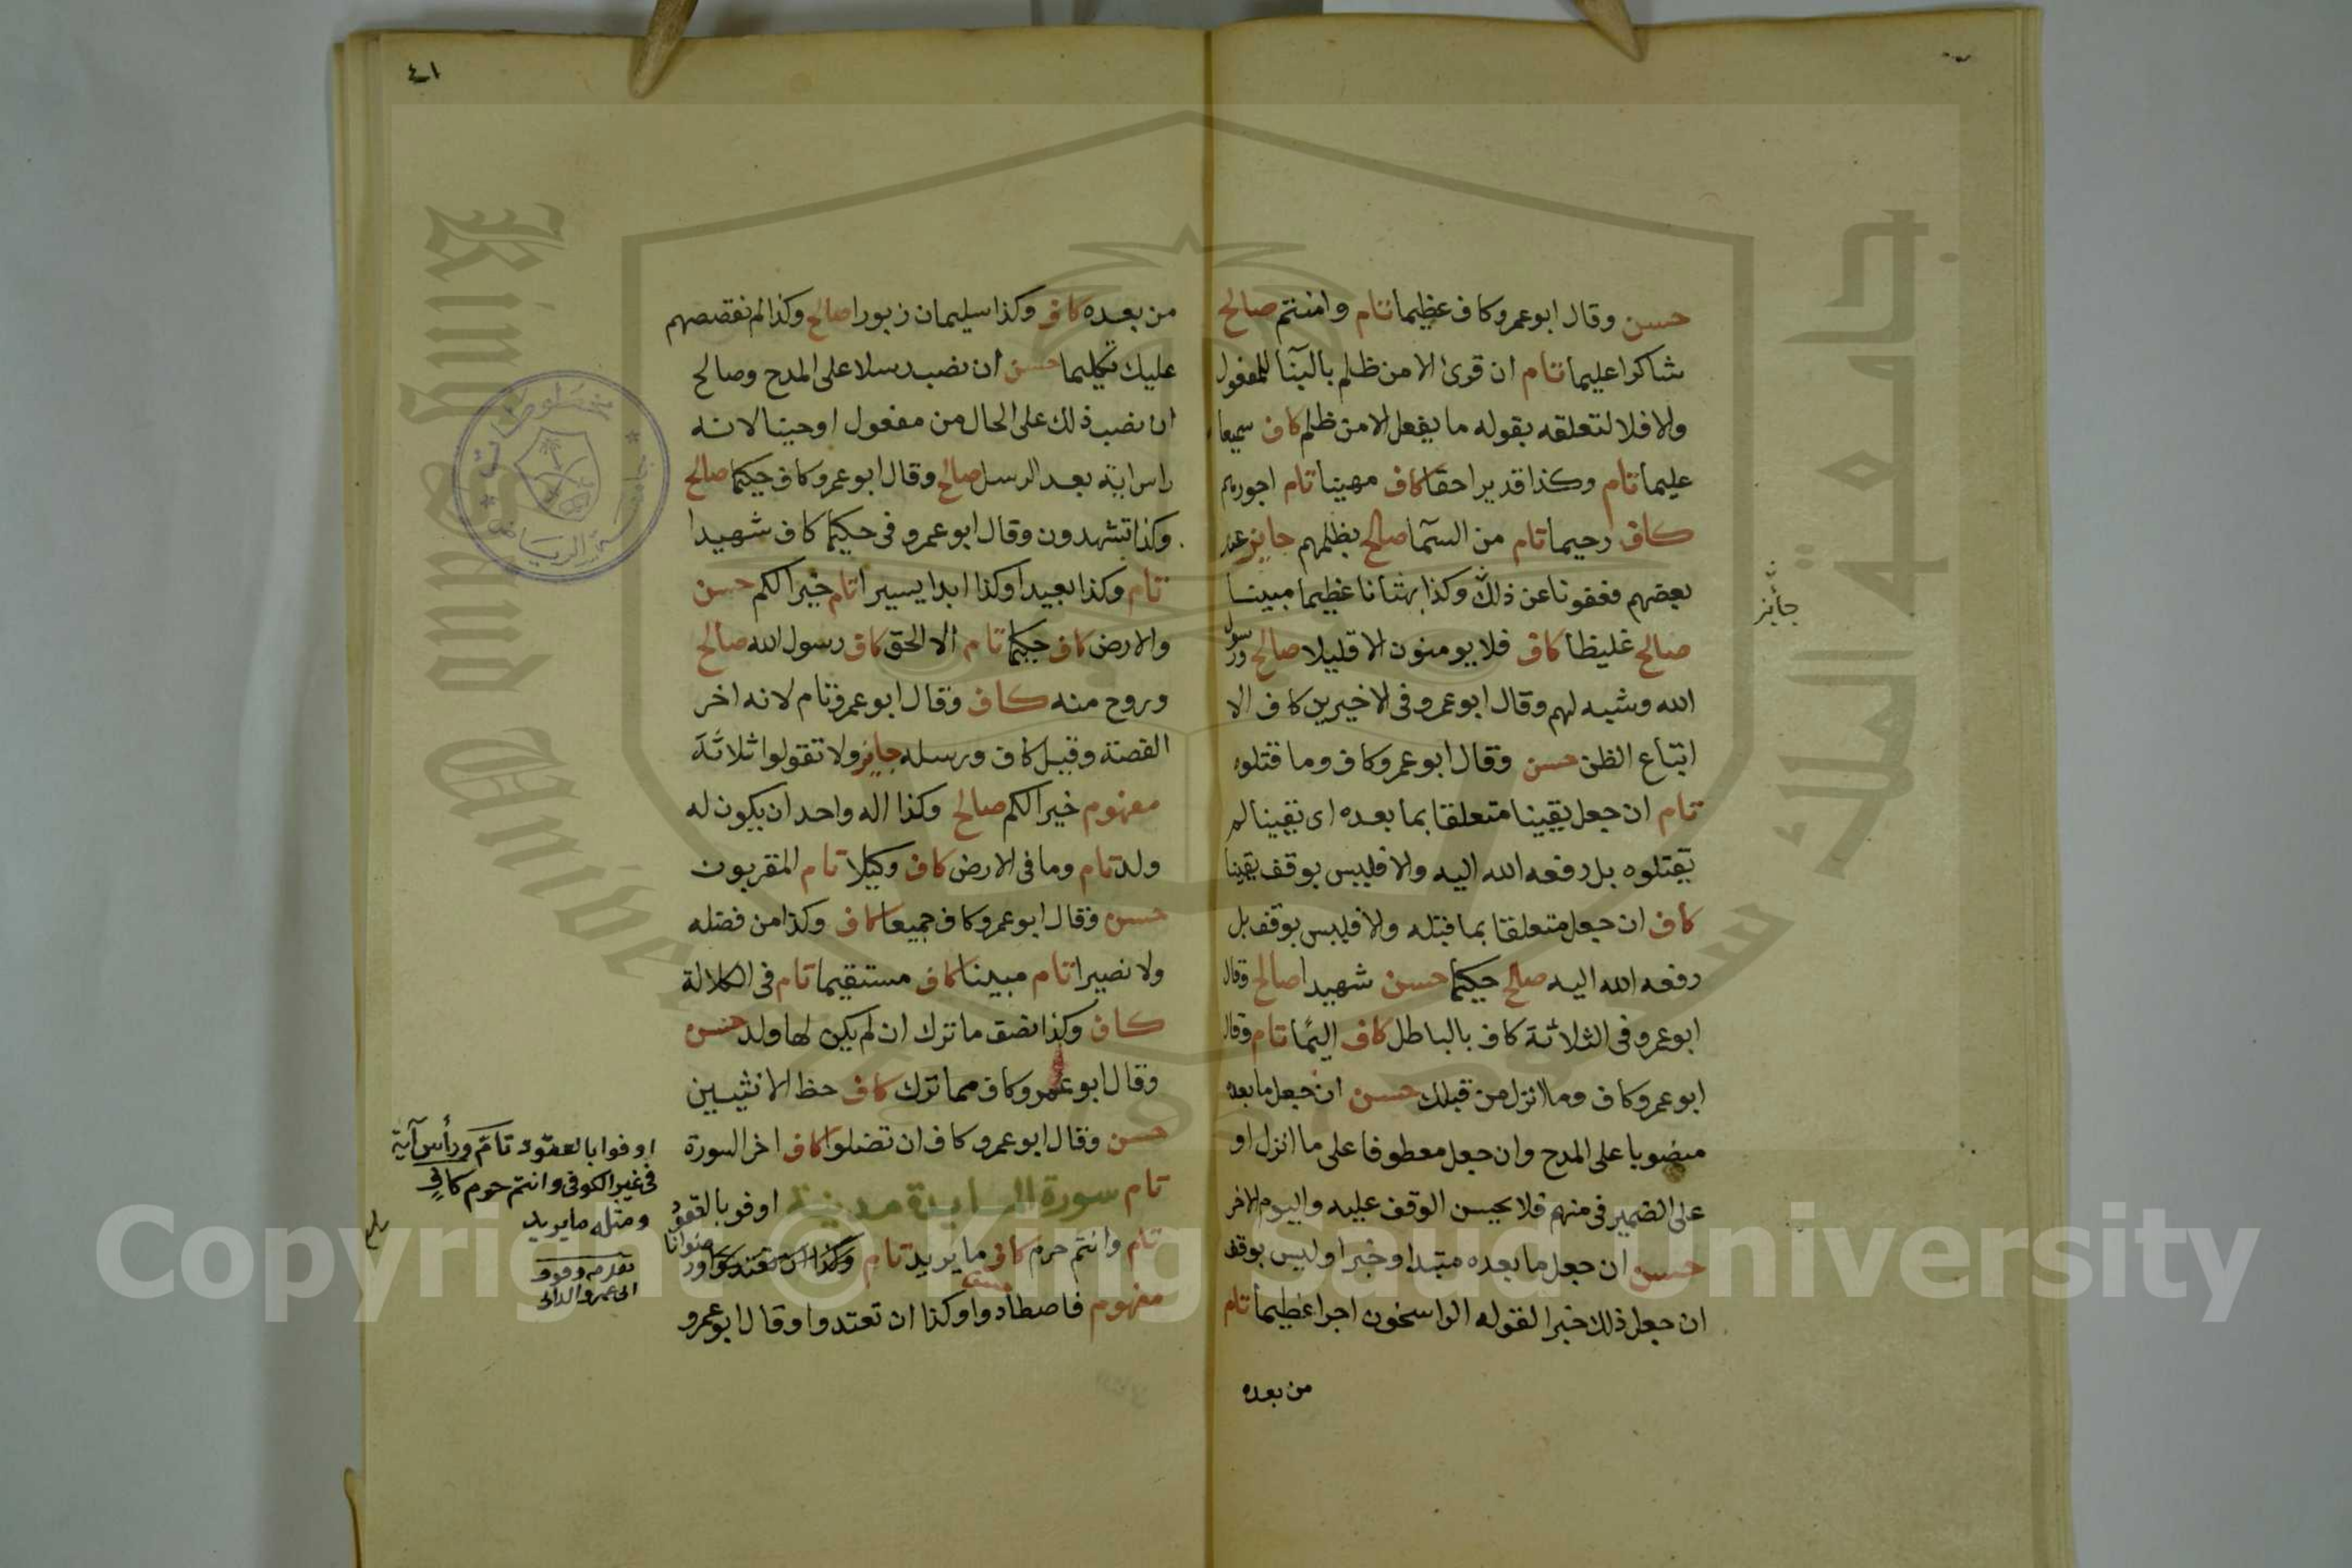 حسن وقال ابو عمرو كاف عظيما تام وامنتم صالح
شاكرا عليما تام ان قرئ الا من ظلم بالبنآ للمفعول
والا فلا لتعلقه بقوله ما يفعل الا من ظلم كاف سميعا
عليما تام وكذا قديرا حقا كاف مهينا تام اجورهم
كاف رحيما تام من السمآ صالح بظلمهم جايز عند
بعضهم فعفونا عن ذلك وكذا بهتانا عظيما مبينا
جائز
صالح غليظا كاف فلا يومنون الا قليلا صالح ورسول
الله وشبه لهم وقال ابو عمرو فى الاخيرين كاف الا
اتباع الظن حسن وقال ابو عمرو كاف وما قتلوه
تام ان جعل يقينا متعلقا بما بعده اى يقينا لم
يقتلوه بل رفعه الله اليه والا فليس بوقف يقينا
كاف ان جعل متعلقا بما قبله والا فليس بوقف بل
رفعه الله اليه صالح حكيما حسن شهيدا صالح وقال
ابو عمرو فى الثلاثة كاف بالباطل كاف اليما تام وقال
ابو عمرو كاف وما انزل من قبلك حسن ان جعل ما بعده
منصوبا على المدح وان جعل معطوفا على ما انزل او
على الضمير فى منهم فلا يحسن الوقف عليه واليوم الاخر
حسن ان جعل ما بعده مبتدا وخبرا وليس بوقف
ان جعل ذلك خبرا لقوله الراسخون اجرا عظيما تام
من بعده
٤١
من بعده كاف وكذا سليمان زبورا صالح وكذا لم نقصصهم
عليك تكليما حسن ان نصب رسلا على المدح وصالح
ان نصب ذلك على الحال من مفعول اوحينا لانه
راس اية بعد الرسل صالح وقال ابو عمرو كاف حكيما صالح
وكذا تشهدون وقال ابو عمرو فى حكيما كاف شهيدا
تام وكذا بعيدا وكذا ابدا يسيرا تام خيرا لكم حسن
والارض كاف حكيما تام الا الحق كاف رسول الله صالح
وروح منه كاف وقال ابو عمرو تام لانه اخر
القصة وقيل كاف ورسله جايز ولا تقولوا ثلاثة
مفهوم خيرا لكم صالح وكذا اله واحد ان يكون له
ولد تام وما فى الارض كاف وكيلا تام المقربون
حسن وقال ابو عمرو كاف جميعا كاف وكذا من فضله
ولا نصيرا تام مبينا كاف مستقيما تام فى الكلالة
كاف وكذا نصف ما ترك ان لم يكن لها ولد حسن
وقال ابو عمرو كاف مما ترك كاف حظ الانثيين
حسن وقال ابو عمرو كاف ان تضلوا كاف اخر السورة
تام سورة المايدة مدنية اوفو بالعقود
تام وانتم حرم كاف ما يريد تام وكذا ان تعتدوا ورضوانا
مفهوم فاصطادوا حسن وكذا ان تعتدوا وقال ابو عمرو
اوفوا بالعقود تام ورأس آية
فى غير الكوفى وانتم حرم كاف
ومثله ما يريد
ابى عمرو الدانى
جامعة الملك سعود
King Saud University
Copyright © King Saud University